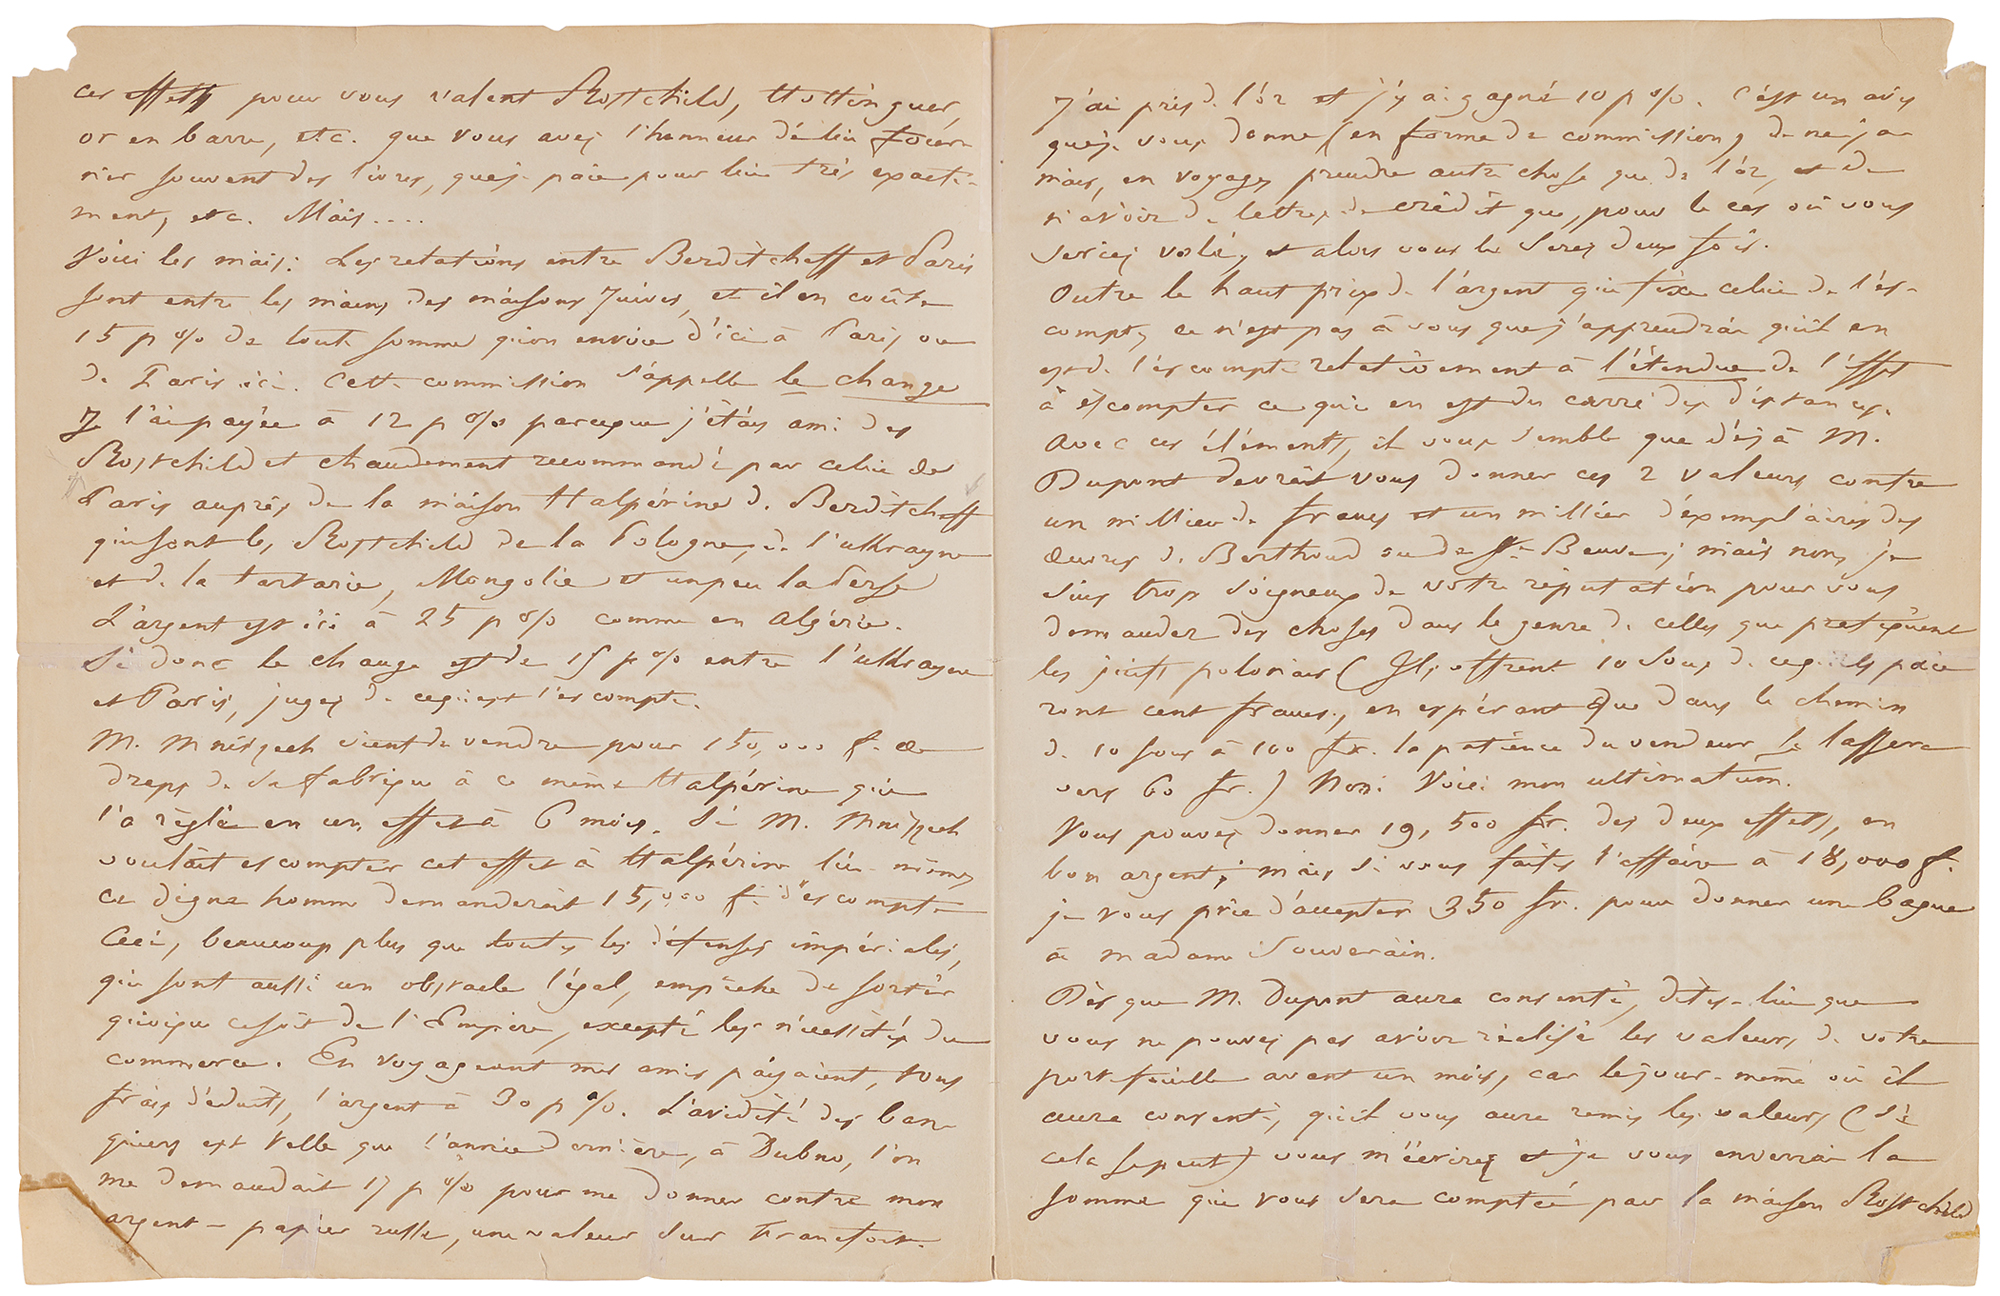 ces effets pour vous valent Rostchild, Hottinguer,
or en barre, etc. que vous avez l'honneur de lui
nier souvent des livres, que je paie pour lui très exacte-
ment, etc. Mais....
Voici les mais: Les relations entre Berditcheff et Paris
sont entre les mains des maisons Juives, et il en coûte
15 p % de toute somme qu'on envoie d'ici à Paris ou
de Paris ici. Cette commission s'appelle le change
Je l'ai payée à 12 p % parceque j'étais ami des
Rostchild et chaudement recommandé par celui de
Paris auprès de la maison Halpérine de Berditcheff
qui sont les Rostchild de la Pologne, de l'Ukrayne
et de la tartarie, Mongolie et un peu la Perse
L'argent est ici à 25 p % comme en Algérie.
Si donc le change est de 15 p % entre l'Ukrayne
et Paris, jugez de ce qu'est l'escompte.
M. Mniszech vient de vendre pour 150,000 f. de
draps de sa fabrique à ce même Halpérine qui
l'a réglé en un effet à 6 mois. Si M. Mniszech
voulait escompter cet effet à Halpérine lui-même,
ce digne homme demanderait 15,000 f. d'escompte
Ceci, beaucoup plus que toutes les défenses impériales,
qui sont aussi un obstacle légal, empêche de sortir
quoique ce soit de l'Empire, excepté les nécessités du
commerce. En voyageant mes amis payaient, tous
frais déduits, l'argent à 30 p %. L'avidité des ban-
quiers est telle que l'année dernière, à Dubno, l'on
me demandait 17 p % pour me donner contre mon
argent-papier russe, une valeur sur Francfort.
J'ai pris de l'or et j'y ai gagné 10 p %. C'est un avis
que je vous donne (en forme de commission) de ne ja-
mais, en voyage, prendre autre chose que de l'or, et de
n'avoir de lettres de crédit que, pour le cas où vous
seriez volé, et alors vous le serez deux fois.
Outre le haut prix de l'argent qui fixe celui de l'es-
compte, ce n'est pas à vous que j'apprendrai qu'il en
est de l'escompte relativement à l'étendue de l'effet
à escompter ce qui en est du carré des distances.
Avec ces éléments, il vous semble que déjà M.
Dupont devrait vous donner ces 2 valeurs contre
un millier de francs et un millier d'exemplaires des
œuvres de Berthoud ou de Ste Beuve; mais non, je
suis trop soigneux de votre réputation pour vous
demander des choses dans le genre de celles que pratiquent
les juifs polonais (Ils offrent 10 sous de ce qu'ils paie
ront cent francs, en espérant que dans le chemin
de 10 sous à 100 fr. la patience du vendeur se lassera
vers 60 fr.) Non: Voici mon ultimatum.
Vous pouvez donner 19,500 fr. des deux effets, en
bon argent; mais si vous faites l'affaire à 18,000 f.
je vous prie d'accepter 350 fr. pour donner une bague
à madame Souverain.
Dès que M. Dupont aura consenti, dites-lui que
vous ne pouvez pas avoir réalisé les valeurs de votre
portefeuille avant un mois, car le jour-même où il
aura consenti, qu'il vous aura remis les valeurs (si
cela se peut) vous m'écrirez et je vous enverrai la
somme qui vous sera comptée par la maison Rostchild